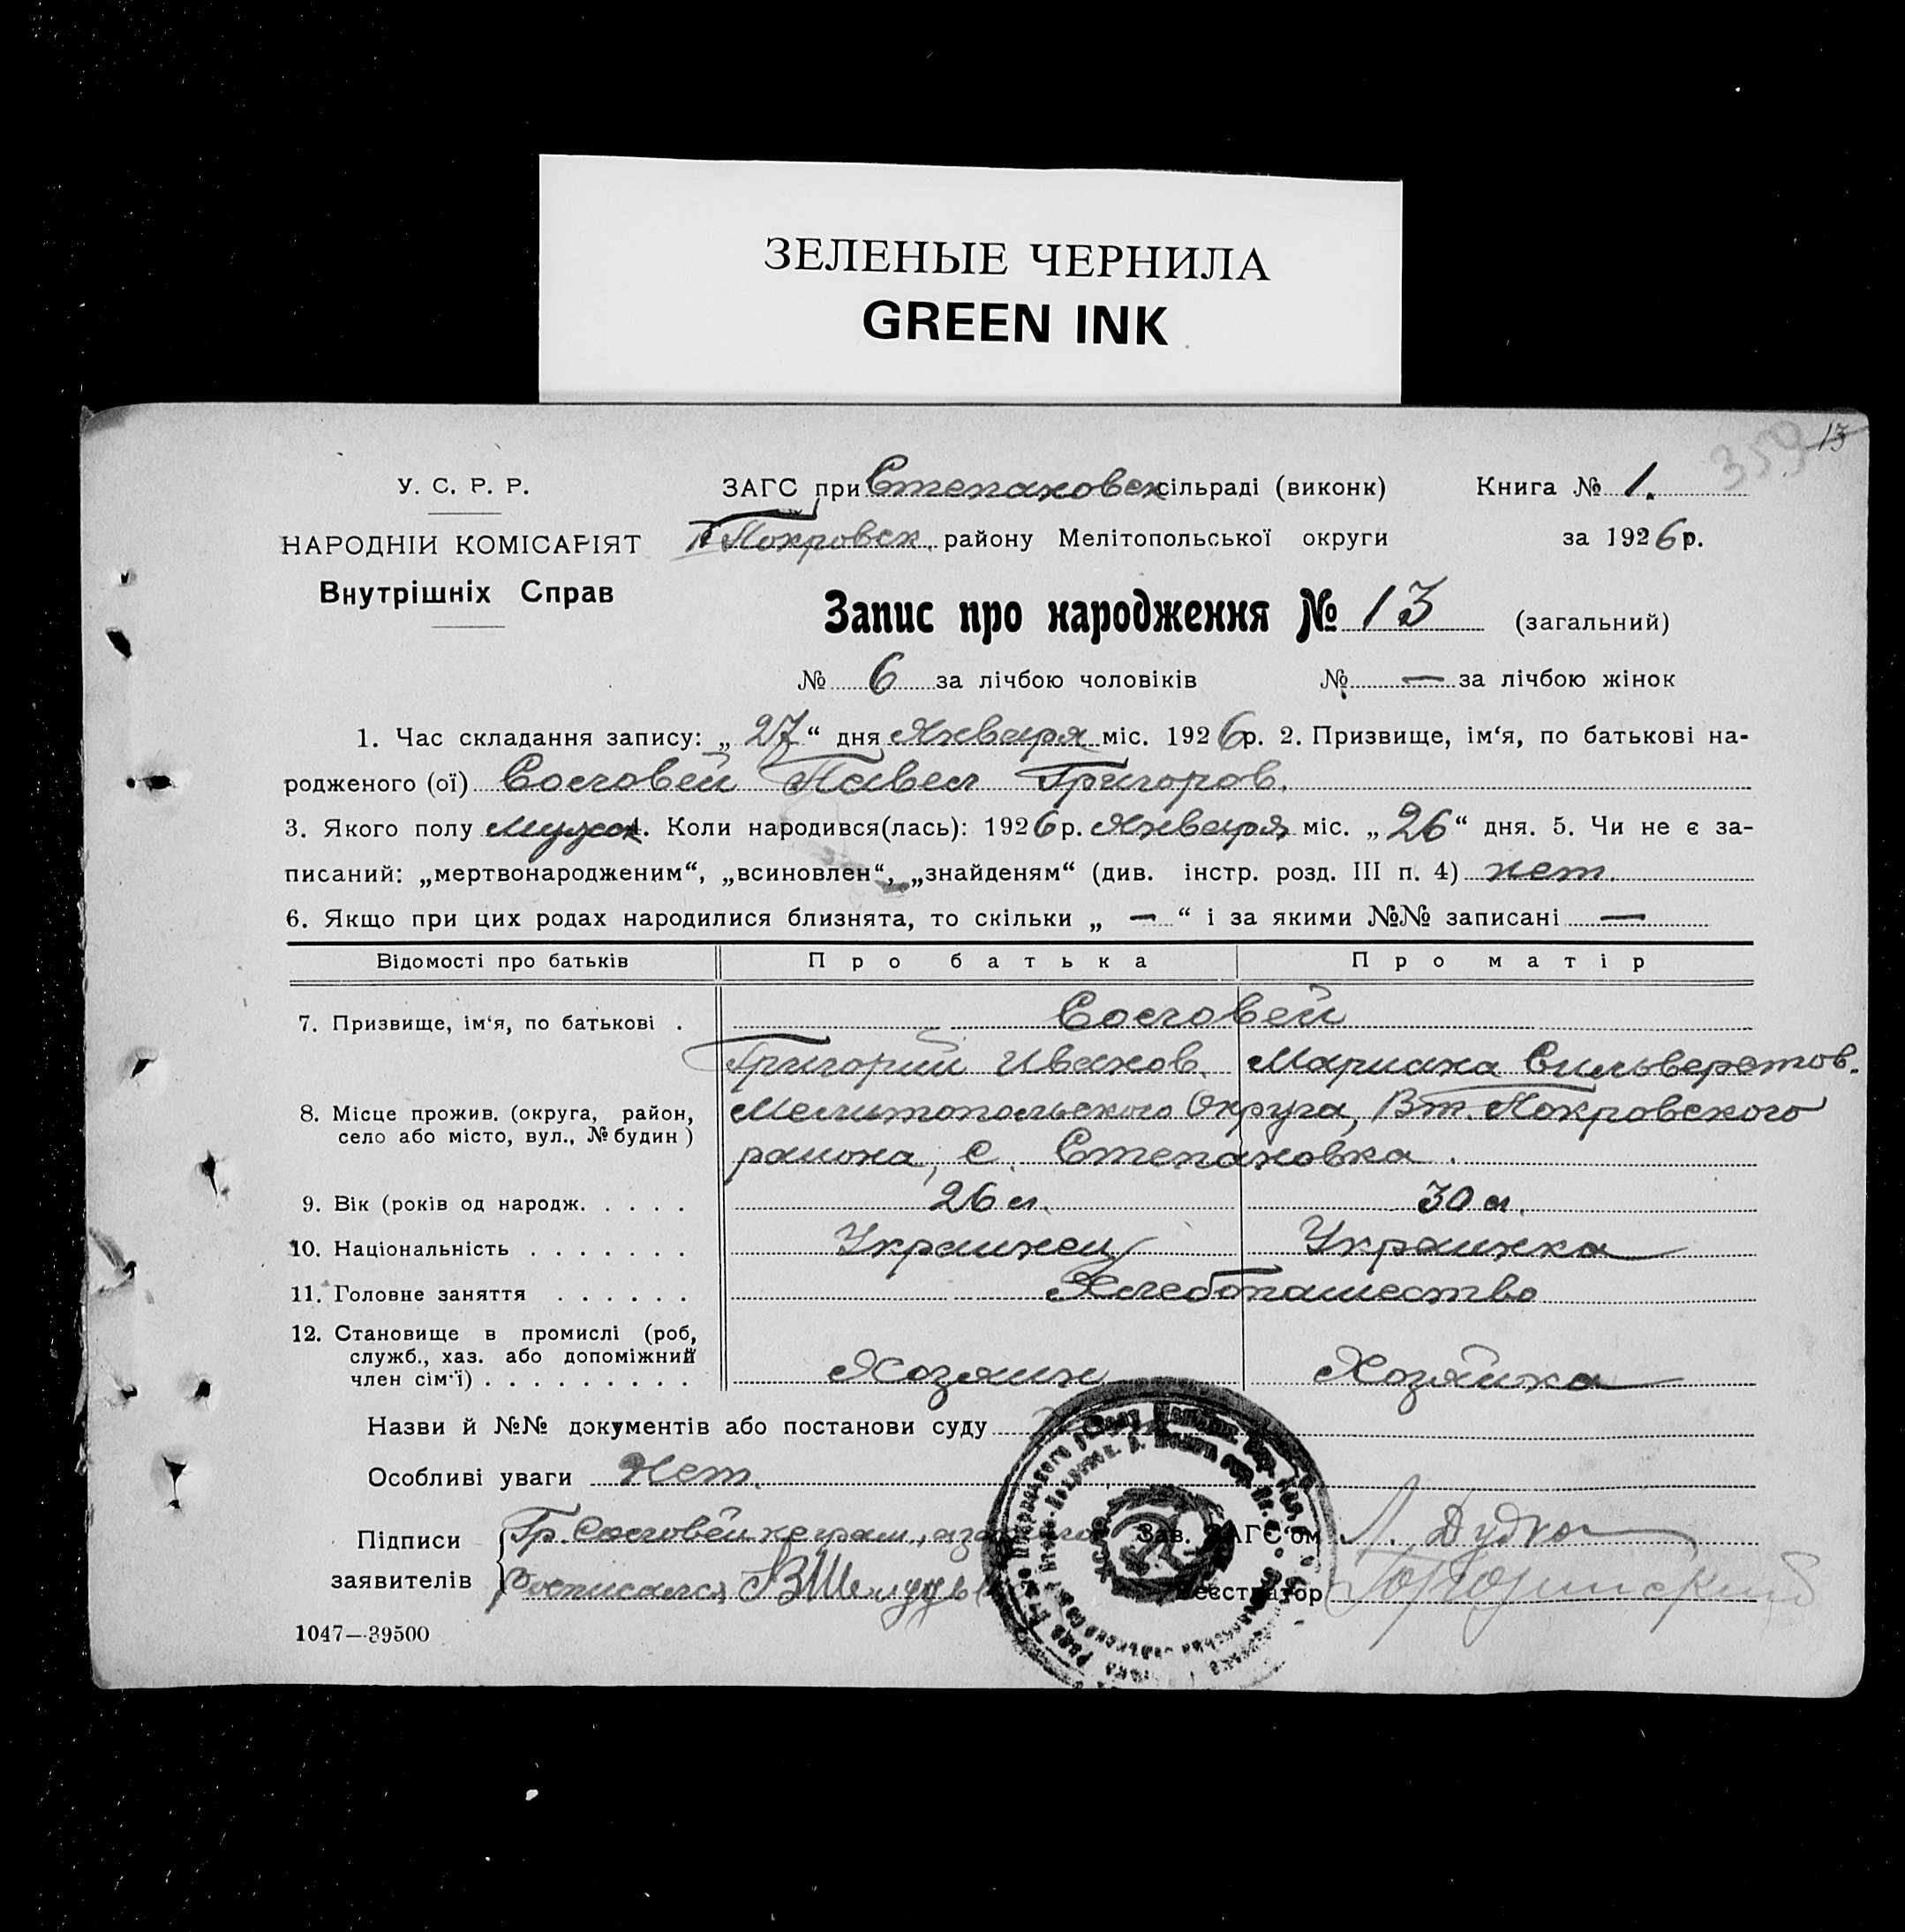 ЗЕЛЕНЫЕ ЧЕРНИЛА
GREEN INK
13
359
У. С. Р. Р.
НАРОДНІЙ КОМІСАРІЯТ
Внутрішніх Справ
ЗАГС при Степановск сільраді (виконк)
Покровск. району Мелітопольської округи
Книга № 1.
за 1926 р.
Запис про народження № 13 (загальний)
№ 6 за лічбою чоловіків № — за лічбою жінок
1. Час складання запису: „ 27 “ дня Января міс. 1926 р. 2. Призвище, ім‘я, по батькові на-
родженого (ої) Соловей Павел Григоров.
3. Якого полу Мужск 4. Коли народився(лась): 1926 р. Января міс. „ 26 “ дня. 5. Чи не є за-
писаний: „мертвонародженим“, „всиновлен“, „знайденям“ (див. інстр. розд. III п. 4) нет.
6. Якщо при цих родах народилися близнята, то скільки „ — “ і за якими №№ записані —
Відомості про батьків Про батька Про матір
7. Призвище, ім‘я, по батькові . Соловей
Григорий Иванов. Мариана Сильверстов.
8. Місце прожив. (округа, район, село або місто, вул., № будин ) Мелитопольского Округа, Вт. Покровского
района, с. Степановка.
9. Вік (років од народж. . . . . 26 л. 30 л.
10. Національність . . . . . . . Украинец Украинка
11. Головне заняття . . . . . . Хлебопашество
12. Становище в промислі (роб,
служб., хаз. або допоміжний
член сім‘ї) . . . . . . . . . Хозяин Хозяйка
Назви й №№ документів або постанови суду
Особливі уваги Нет.
Підписи Гр. Соловей неграм., а за него Зав. ЗАГС‘ом Л. Дудка
заявителів росписался Реєстратор
1047—39500